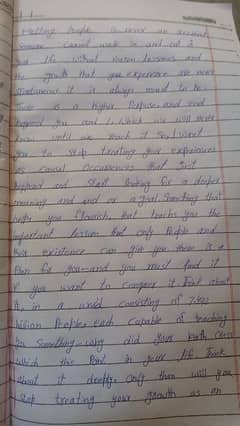 Meeting people is never an accident
someone cannot walk in and out of
the without reason lessons and
the growth that you experience are never
it is always meant to be.
There is a higher purpose, and end
beyond you and I, which we will never
until we reach it So I want
you to stop treating your experiences
as casual occurrences that just
happened and start looking for a deeper
meaning and end or a goal. Something that
helps you flourish that teachs you the
important lesson that only People and
existence can give you there is a
Plan for you and you must find it
if you want to conquer it Think about
it, in a world consisting of
billion People, each capable of teaching
you Something, why did your Path Cross
which this Point in your life Think
about it deeply. only then will you
Stop treating your growth as an